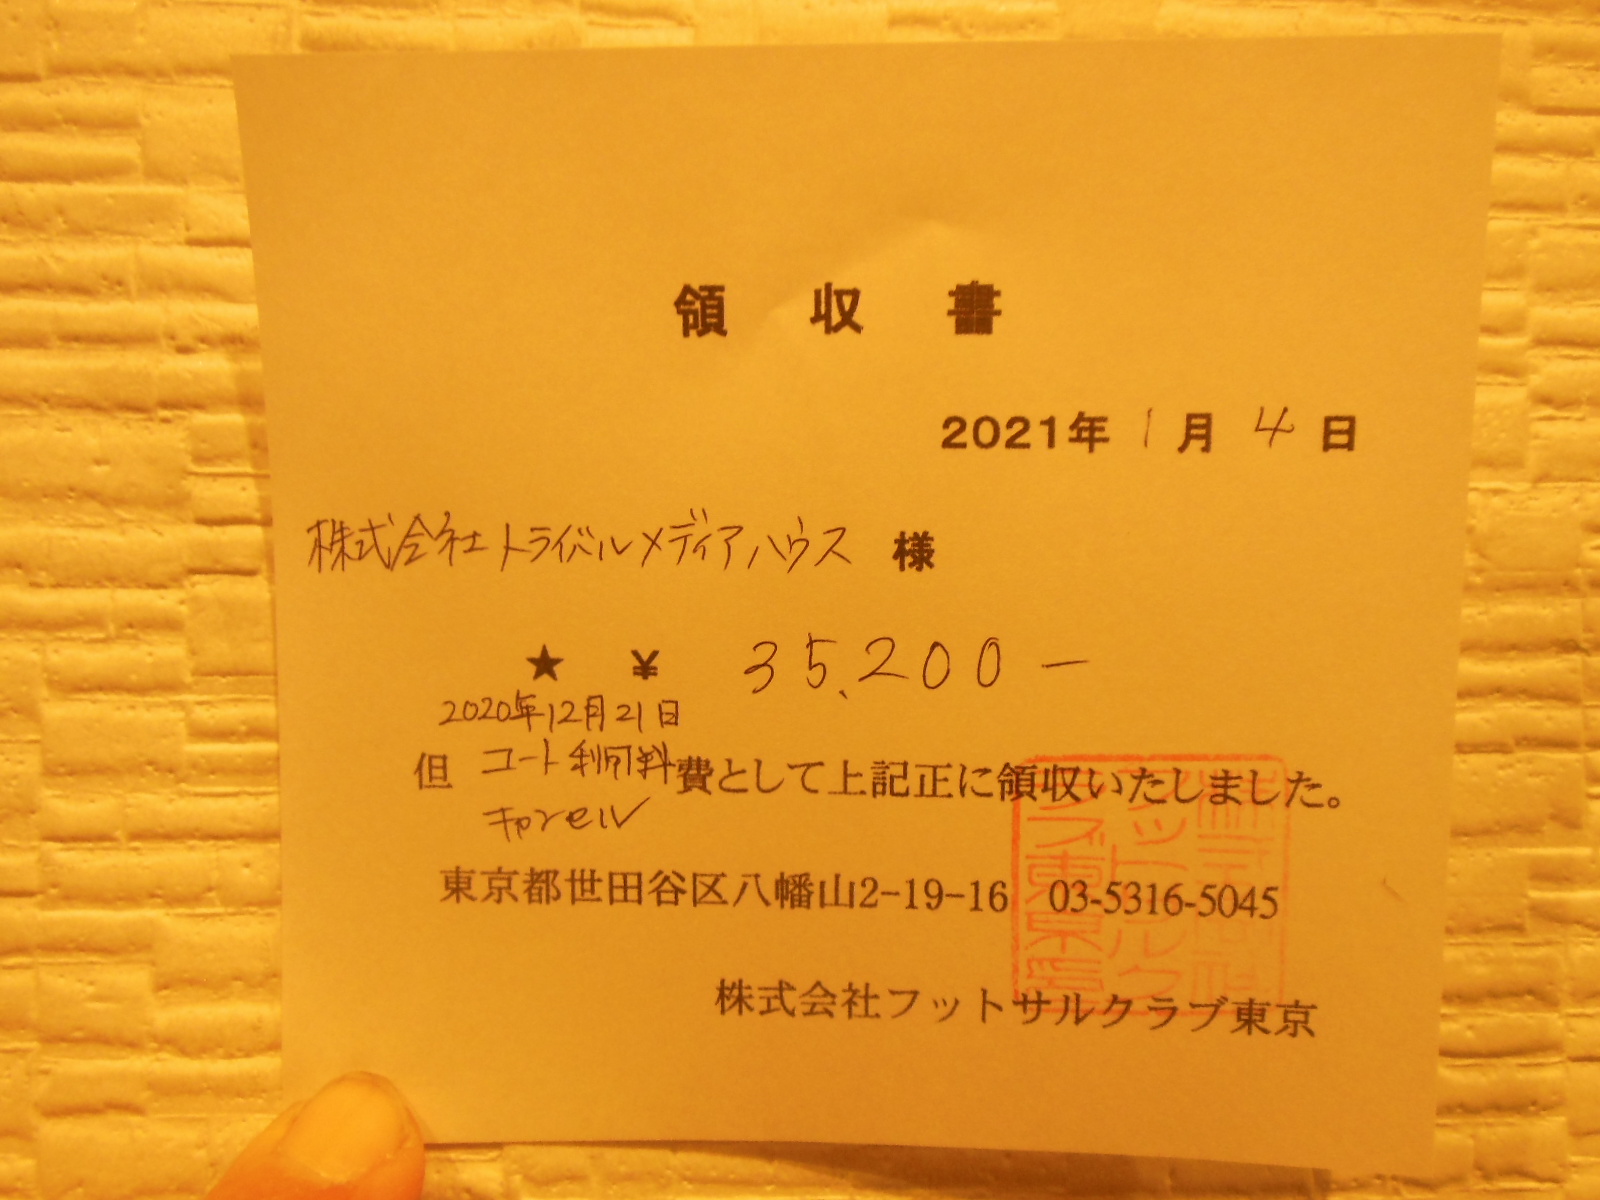 領収書
2021年1月4日
株式会社トライバルメディアハウス 様
★ ¥ 35,200-
2020年12月21日
但 コート利用料 費として上記正に領収いたしました。
キャンセル
東京都世田谷区八幡山2-19-16 03-5316-5045
株式会社フットサルクラブ東京